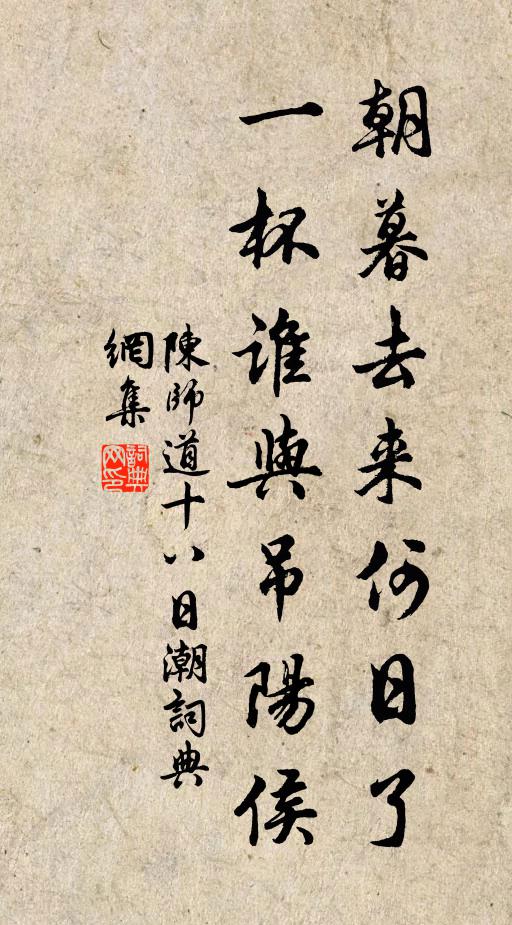 朝暮去来何日了
一杯誰與吊陽侯
陳師道十八日潮詞典
網集
詞典
网印